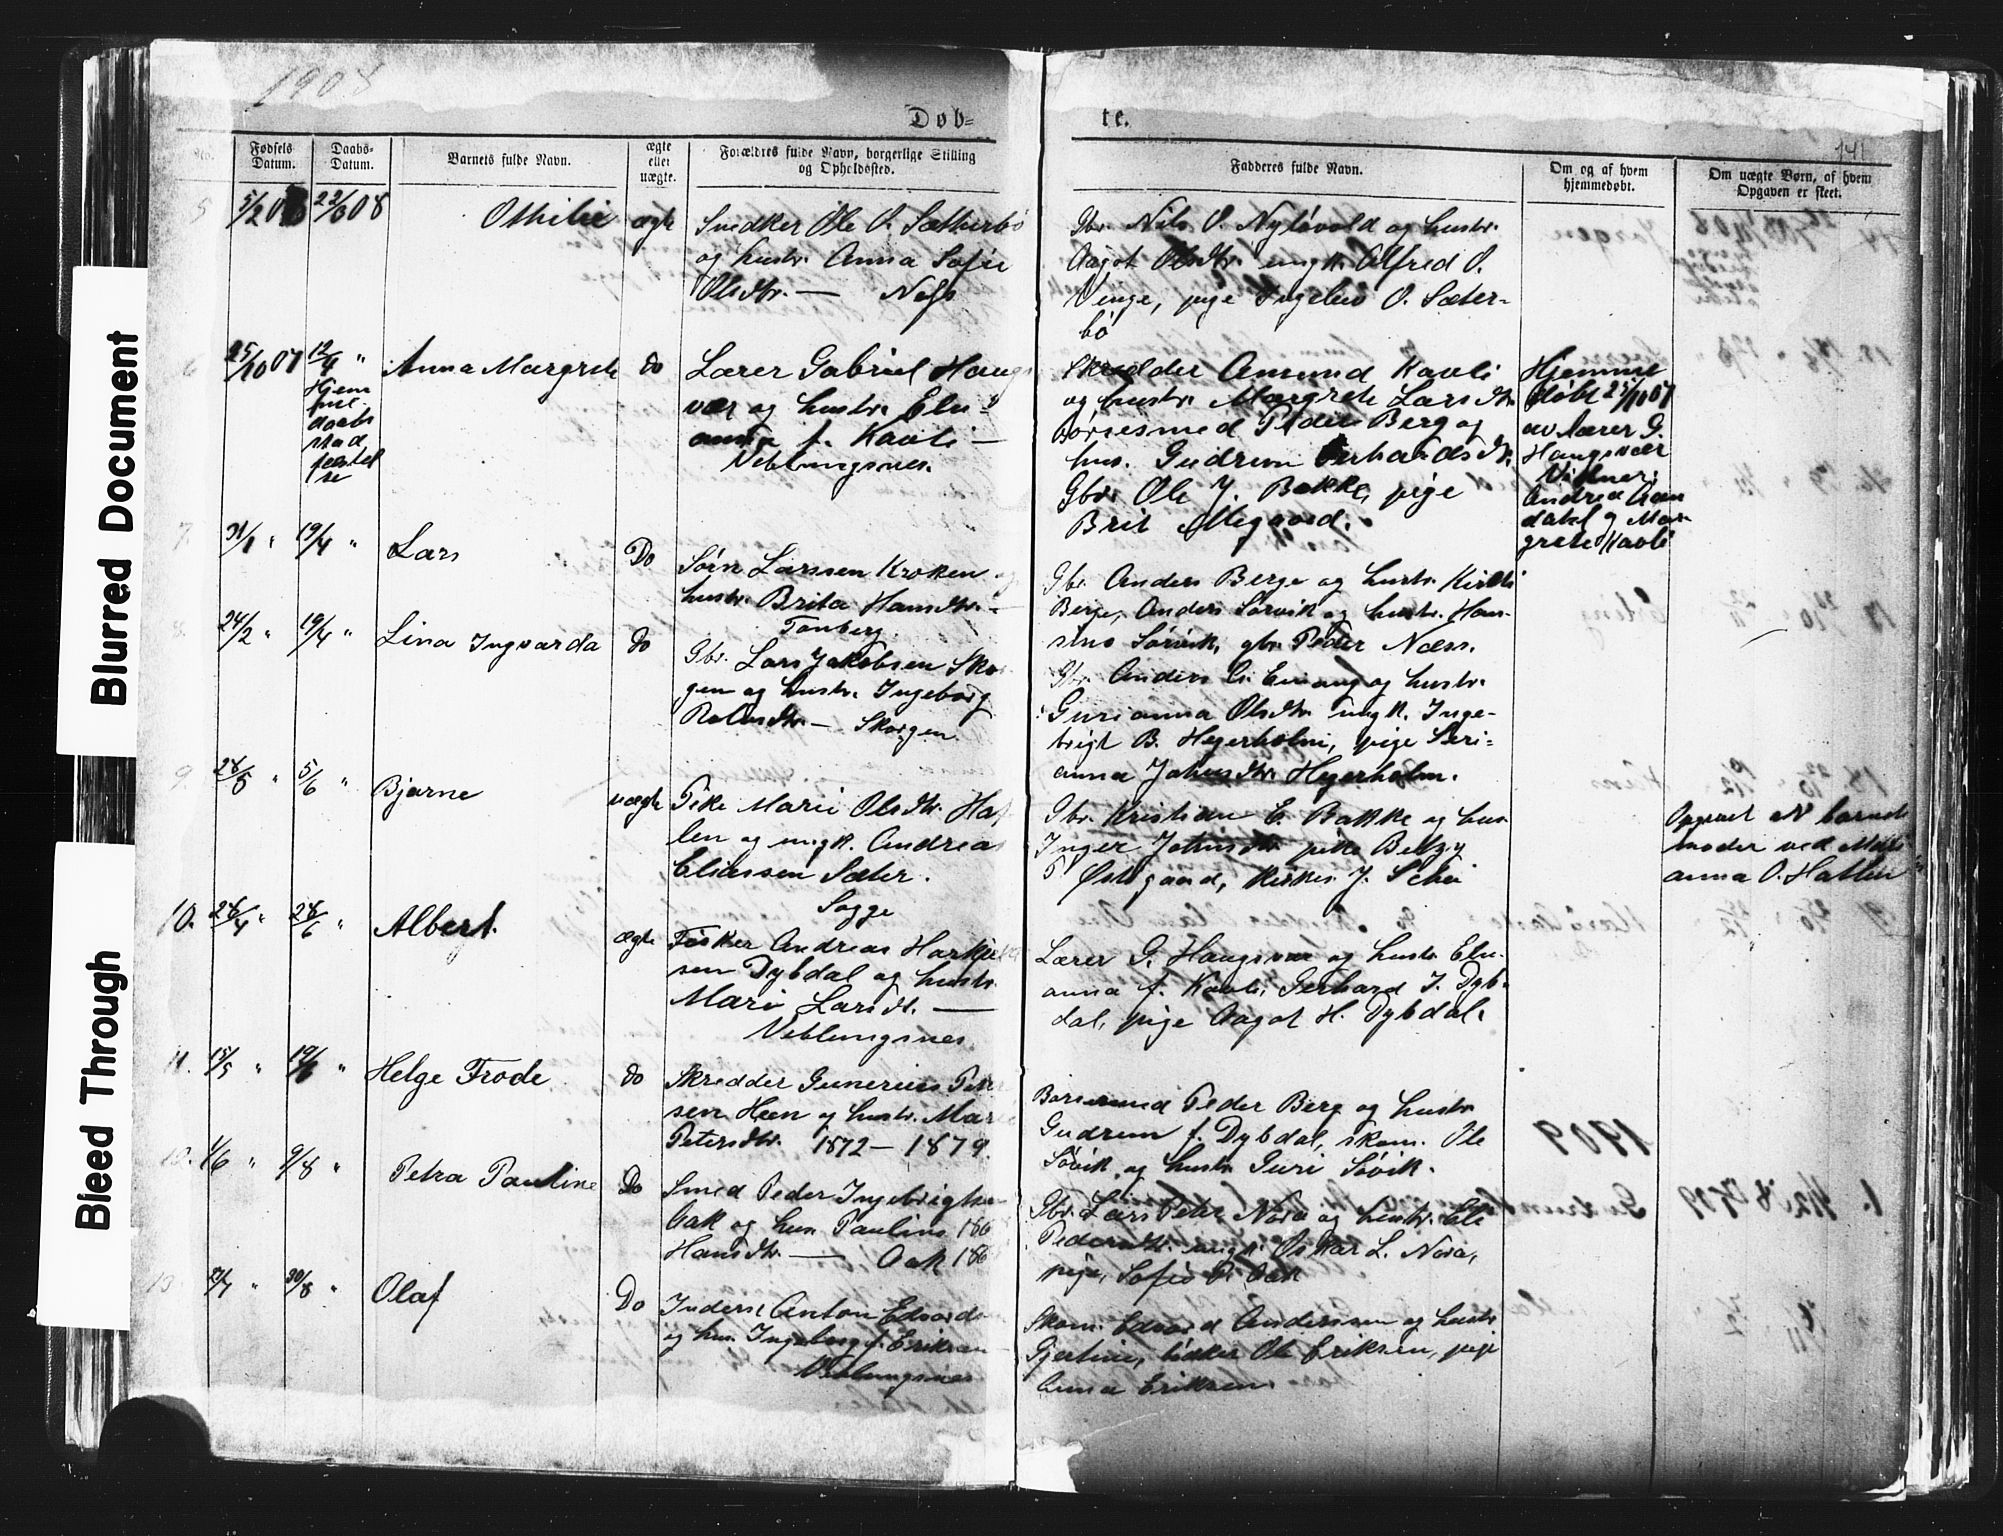 1908
Døb=
te.
141
No.
Fødsels Datum.
Daabs-Datum.
Barnets fulde Navn.
ægte eller uægte.
Forældres fulde Navn, borgerlige Stilling og Opholdssted.
Fadderes fulde Navn.
Om og af hvem hjemmedøbt.
Om uægte Børn, af hvem Opgaven er skeet.
5
5/2 08
22/3 08
Othilie
ægte
Snedker Ole O. Sætherbø
og hustr. Anna Sofie
Olsdtr. — Næs
Gbr. Nils O. Nyløvold og hustr.
Aagot Olsdtr. ungk. Alfred O.
Venge, pige Ingeleiv O. Sæter-
bø
6
25/10 07
12/4 "
Hjem
me
daabs
stad
fæstel
se
Anna Margrete
do
Lærer Gabriel Haugs
vær og hustr. Elu-
anna f. Kavli —
Veblungsnes.
Skrædder Amund Kavli
og hustr. Margrete Larsdtr.
Børsesmed Peder Berg og
hus. Gudrun Gerhardsdtr.
Gbr. Ole J. Bakke, pige
Brit Mogaard.
Hjemme
døbt 25/10 07
av lærer G.
Haugsvær
Vidner:
dahl og Mar
grete Kavli
7.
31/1 "
19/4 "
Lars
Do
Søren Larssen Kroken og
hustr. Brita Hansdtr. —
Tonberg.
Gbr. Anders Berge og hustr. Kirsti
Berge, Anders Sørvik og hustr. Han-
sine Sørvik, gbr. Peder Næss.
8.
24/2 "
19/4 "
Lina Ingvarda
do
Gbr. Lars Jakobsen Skor
gen og hustr. Ingeborg
— Skorgen.
Gbr. Anders G. Enang og hustr.
Gurianna Olsdtr. ungk. Inge-
brigt B. Hejerholm, pige Beri-
anna Johnsdtr. Hejerholm.
9.
28/5 "
5/6 "
Bjarne
uægte
Pike Marie Olsdtr. Hat
len og ungk. Andreas
Eliassen Sæter.
Sogge
Gbr. Kristian E. Bakke og hus
Inger Johnsdtr. pike Betzy
T Østigaard, kirkes. J. Schei
Opgaaet av barnets
moder ved Mari
anna O. Hatlen
10.
26/4 "
28/6 "
Albert.
ægte
Fisker Andreas
sen Dybdal og hustr.
Marie Larsdt. —
Veblungsnes
Lærer G. Haugsvær og hustr. Elu-
anna f. Kavli, Gerhard J. Dyb-
dal, pige Aagot H. Dybdal.
11.
15/5 "
19/6 "
Helge Frode
do
Skredder Gunerius Peter
sen Heen og hustr. Marie
Petersdtr. 1872 — 1879.
Børsesmed Peder Berg og hustr.
Gudrun f. Dybdal, skom. Ole
Søvik og hustr. Guri Søvik.
12.
4/6 "
9/8 "
Petra Pauline
Do
Smed Peder Ingebrigtsen
Aak og hus. Pauline 186
Hansdtr. — Aak 186
Gbr. Lars Peter Nora og hustr. Ele
Pedersdtr. ungk. Oskar L. Nora,
pige, Sofie P. Aak
13
21/7 "
30/8 "
Olaf
Do
Inders. Anton Edvards
og hus. Ingeborg f. Eriksen —
Veblungsnes
Skom. Edvard Anderssen og hustr.
Gjertine, Ole Eriksen, pige
Anna Eriksen.
1909
Blurred Document
Bleed Through